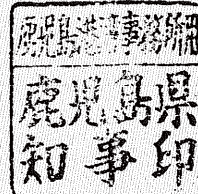 鹿児島港工事事務所用
鹿児島県
知事印